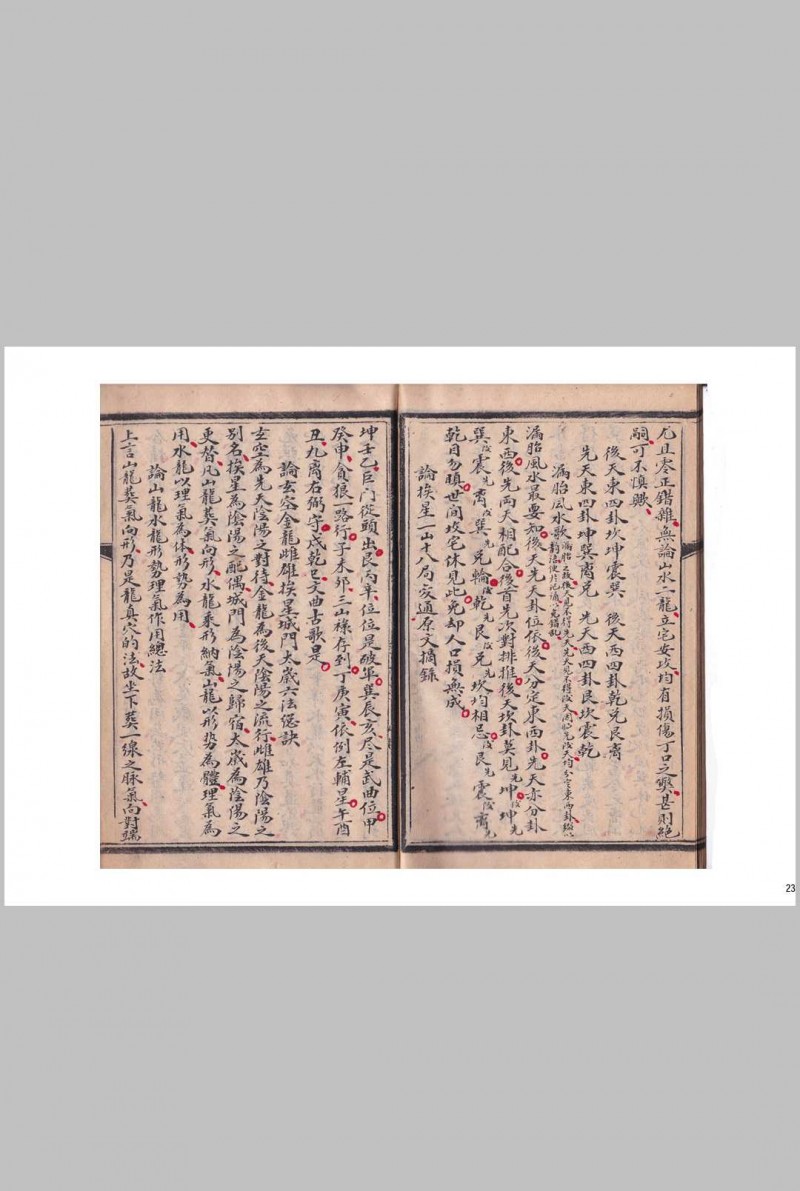 尤且零正錯雜無論山水二龍立宅安坟均有損傷丁口之弊甚則絕
嗣可不慎歟
後天東四卦坎坤震巽 後天西四卦乾兌艮离
先天東四卦坤巽离兌 先天西四卦艮坎震乾
漏胎風水歌
漏胎風水最要知後天先天卦位依後天分定東西卦先天亦分卦
東西後先兩天相配合後首先次對排推後天坎卦莫見先坤後坤先
巽後震先离後巽先兌輪後乾先艮後兌先坎均相忌後艮先震後离先
乾目勿瞋世间坟宅休見此免却人口損無成
論挨星一山十八局亥通原文摘錄
坤壬乙巨门從頭出艮丙辛位位是破軍巽辰亥尽是武曲位甲
癸申貪狼一路行子未邜三山祿存到丁庚寅依例左輔星午酉
丑九离右弼守戌乾巳文曲古歌是
論玄空金龍雌雄挨星城門太歲六法偲訣
玄空為先天陰陽之對待金龍為後天陰陽之流行雌雄乃陰陽之
別名挨星為陰陽之配偶城門為陰陽之歸宿太歲為陰陽之
更替凡山龍葬氣向形水龍乘形納氣山龍以形势為體理氣為
用水龍以理氣為体形勢為用
論山龍水龍形勢理氣作用總法
上言山龍葬氣向形乃是龍真穴的法故坐下葬一線之脉氣向對端
23